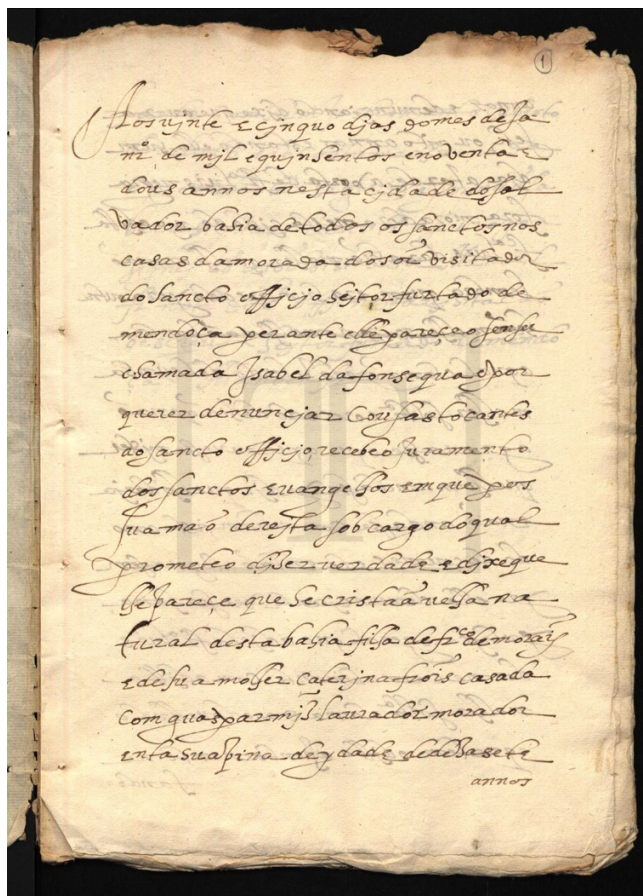 1
Aos vinte e cinquo dias do mes de Ja
nrº de mil e quinsentos e noventa e
dous annos nesta cidade do Sal
vador bahia de todos os sanctos nas
casas da morada do sõr visitador
do sancto officio heitor furtado de
mendoça perante elle pareçeo
chamada Isabel da fonsequa e por
querer denunciar cousas tocantes
ao sancto officio, recebeo juramento
dos sanctos evangelhos em que pos
sua mão dereita sob cargo do qual
prometeo dizer verdade e dixe que
lhe pareçe que he cristaã velha na
tural desta bahia filha de frcº de morais
e de sua molher Caterina frois casada
com guaspar miz laurador morador
em tasuapina de ydade de dezasete
annos